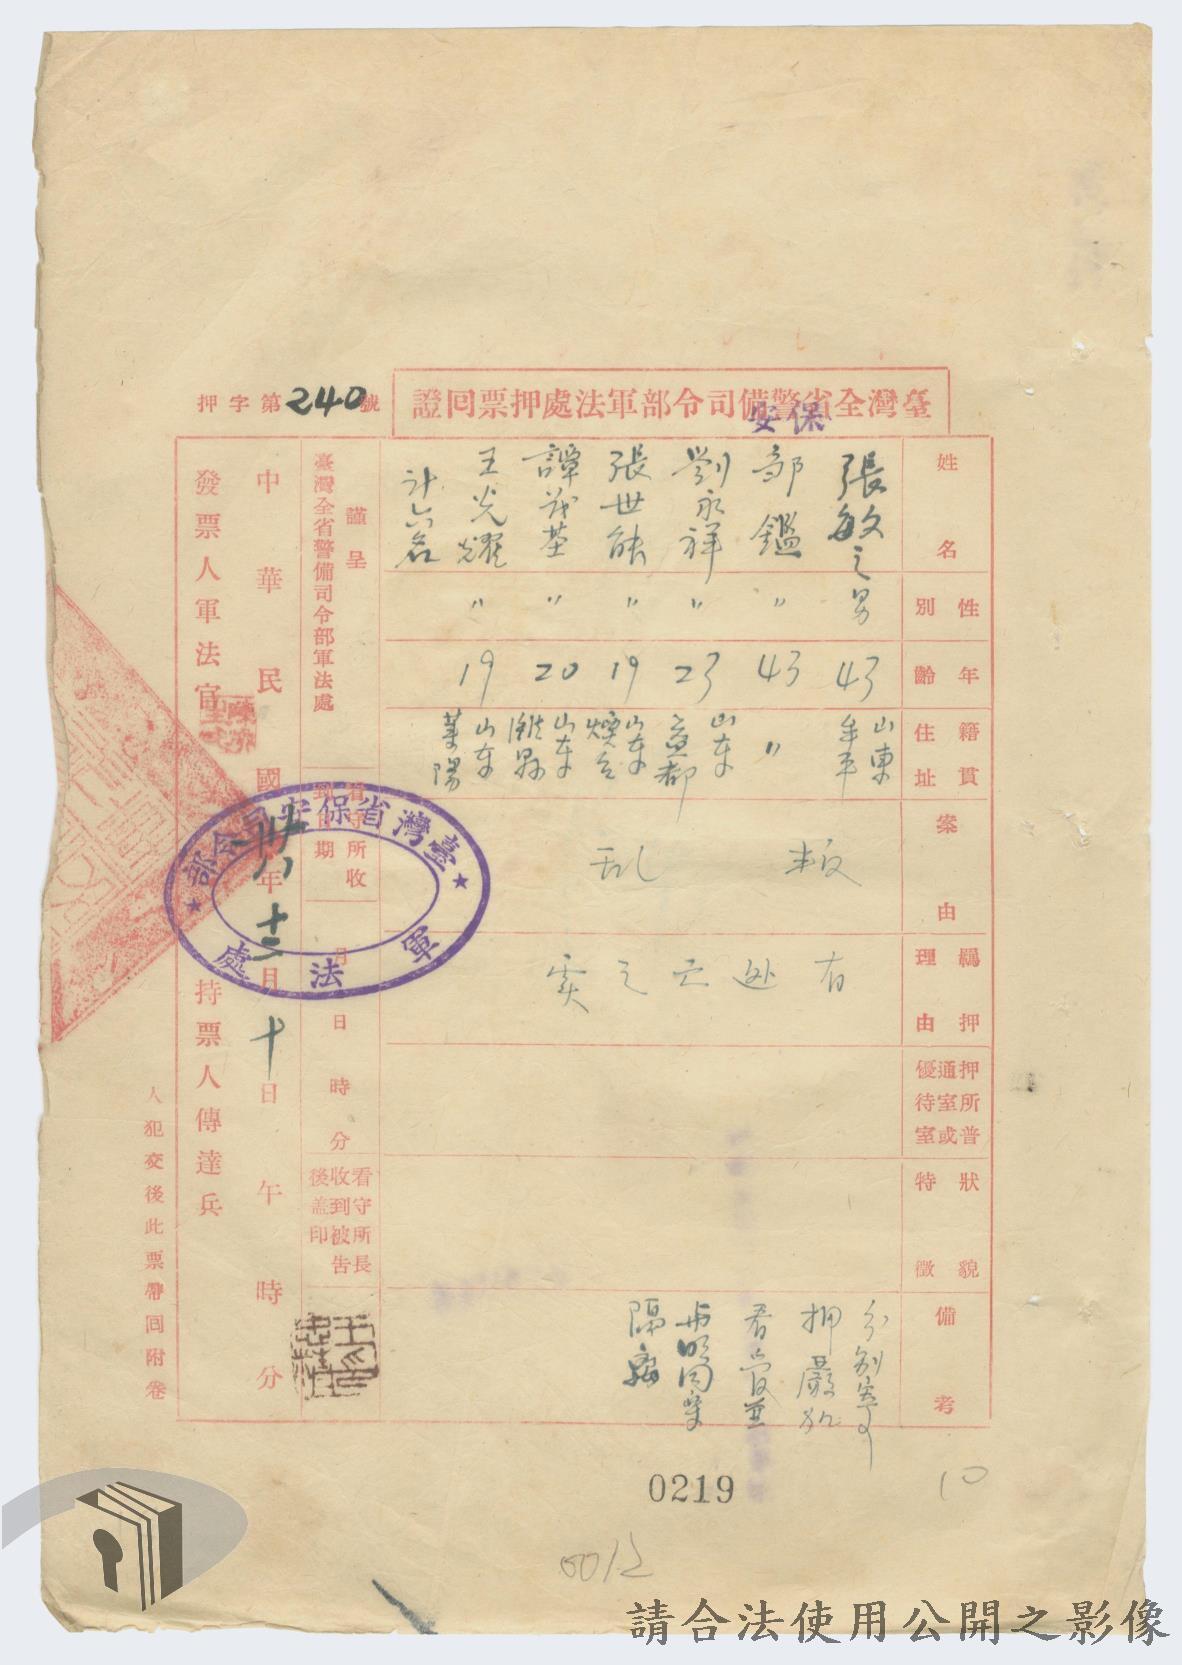 臺灣全省警備司令部軍法處押票回證
保安
押字第240號
姓名
性別
年齡
籍貫住址
案由
羈押理由
押所普通室或優待室
狀貌特徵
備考
張敏之 男 43 山東牟平
鄒鑑 〃 43 〃
劉永祥 〃 23 山东益都
張世能 〃 19 山东煙台
譚茂基 〃 20 山东濰縣
王光耀 〃 19 山东萊陽
計六名
叛乱
有逃亡之虞
分別寄
押嚴加
看管並
與同案
隔離
謹呈
臺灣全省警備司令部軍法處
看守所收到日期
月日時分
看守所長收到被告後盖印
中華民國卅八年十二月十日午時分
發票人軍法官
持票人傳達兵
人犯交後此票帶回附卷
臺灣省保安司令部
軍法處
0219
10
0012
請合法使用公開之影像